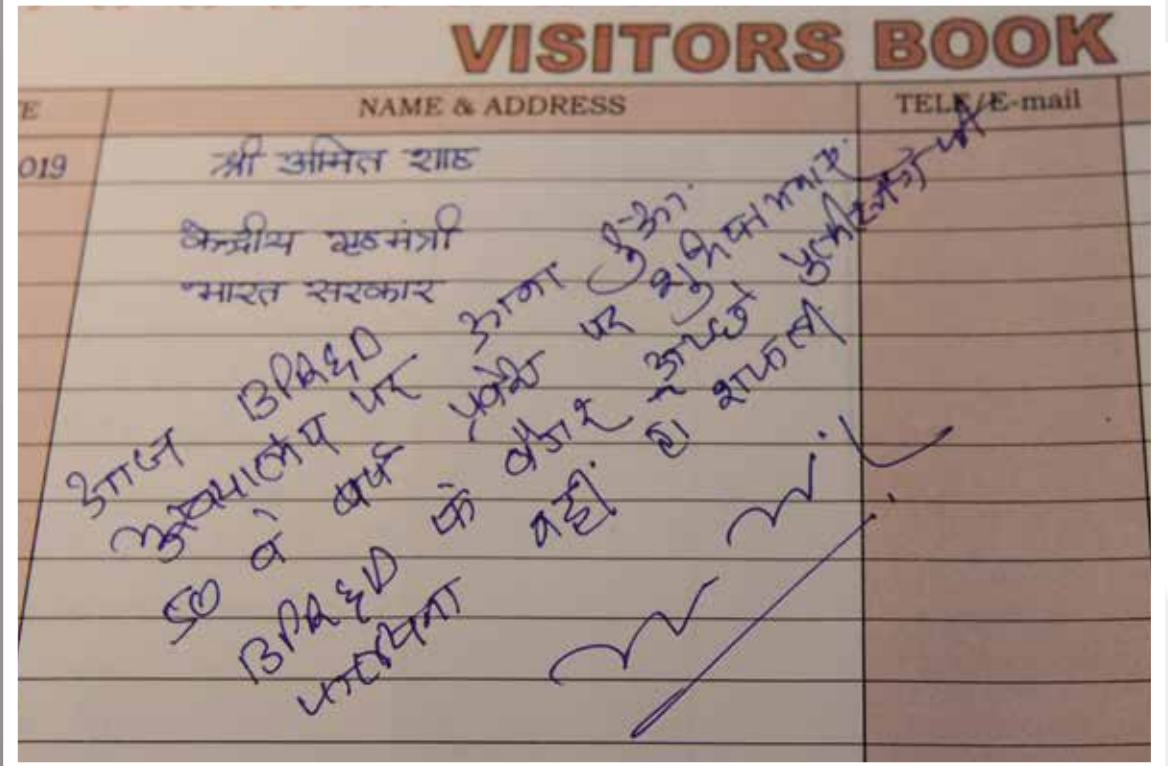 VISITORS BOOK
E NAME & ADDRESS TELE/E-mail
019 श्री अमित शाह
केन्द्रीय गृहमंत्री
भारत सरकार
आज BPR&D
मुख्यालय पर आना हुआ।
50 वे वर्ष प्रवेश पर शुभकामनाएं
BPR&D के बगैर अच्छे पुलिसिंग की
कल्पना नहीं हो सकती